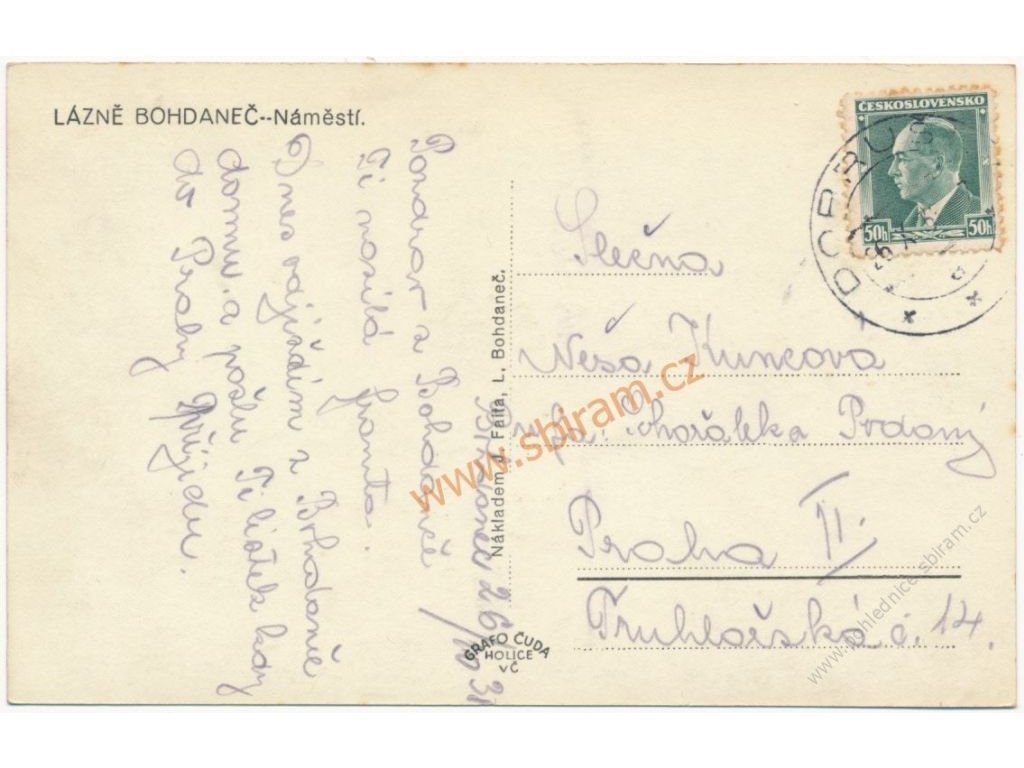 LÁZNĚ BOHDANEČ--Náměstí.
ČESKOSLOVENSKO
50h 50h
DOBRUŠ
Bohdaneč 26/10 38
Pozdrav z Bohdanče
Ti posílá Franta.
Dnes odjíždím z Bohdanče
domu a pošlu Ti lístek kdy
do Prahy přijedu.
Nákladem J. Falta, L. Bohdaneč.
GRAFO ČUDA
HOLICE
VČ
Slečna
Néša Kuncova
Chorálka Podaný
Praha II.
Truhlařská č. 14.
www.sbiram.cz
www.pohlednice-sbiram.cz